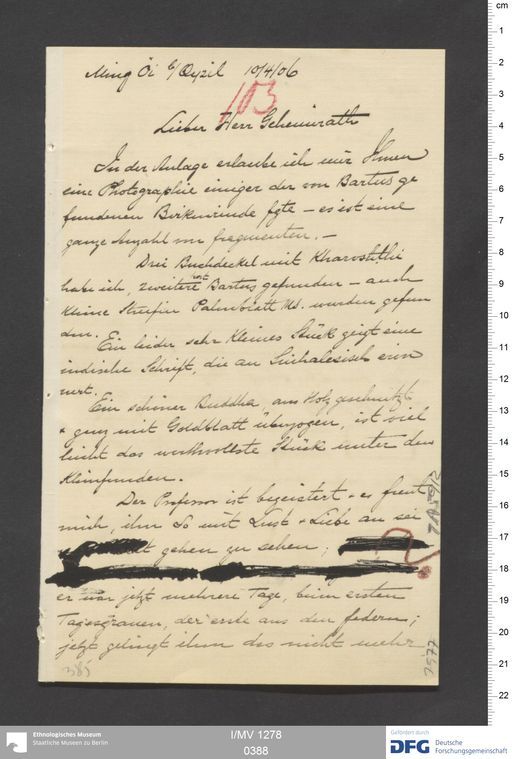 Ming Öi b/ Qyzil 10/4/06
103
Lieber Herr Geheimrath
In der Anlage erlaube ich mir Ihnen
eine Photographie einiger der von Bartus ge
fundenen Birkenrinde fgte – es ist eine
ganze Anzahl von fragmenten. –
Drei Buchdeckel mit Kharoshthi
habe ich, zweitere hat Bartus gefunden – auch
kleine Streifen Palmblatt Ms. wurden gefun
den. Ein leider sehr kleines Stück zeigt eine
indische Schrift, die an Sinhalesisch erin
nert.
Ein schöner Buddha, aus Holz geschnitzt
+ ganz mit Goldblatt überzogen, ist viel
leicht das werthvollste Stück unter den
Kleinfunden.
Der Professor ist begeistert + es freut
mich, ihn so mit Lust + Liebe an sei
gehen zu sehen;
er war jetzt mehrere Tage, beim ersten
Tagesgrauen, der erste aus den federn;
jetzt gelingt ihm das nicht mehr
385
7577
cm
1
2
3
4
5
6
7
8
9
10
11
12
13
14
15
16
17
18
19
20
21
22
Ethnologisches Museum
Staatliche Museen zu Berlin
I/MV 1278
0388
Gefördert durch
DFG Deutsche
Forschungsgemeinschaft